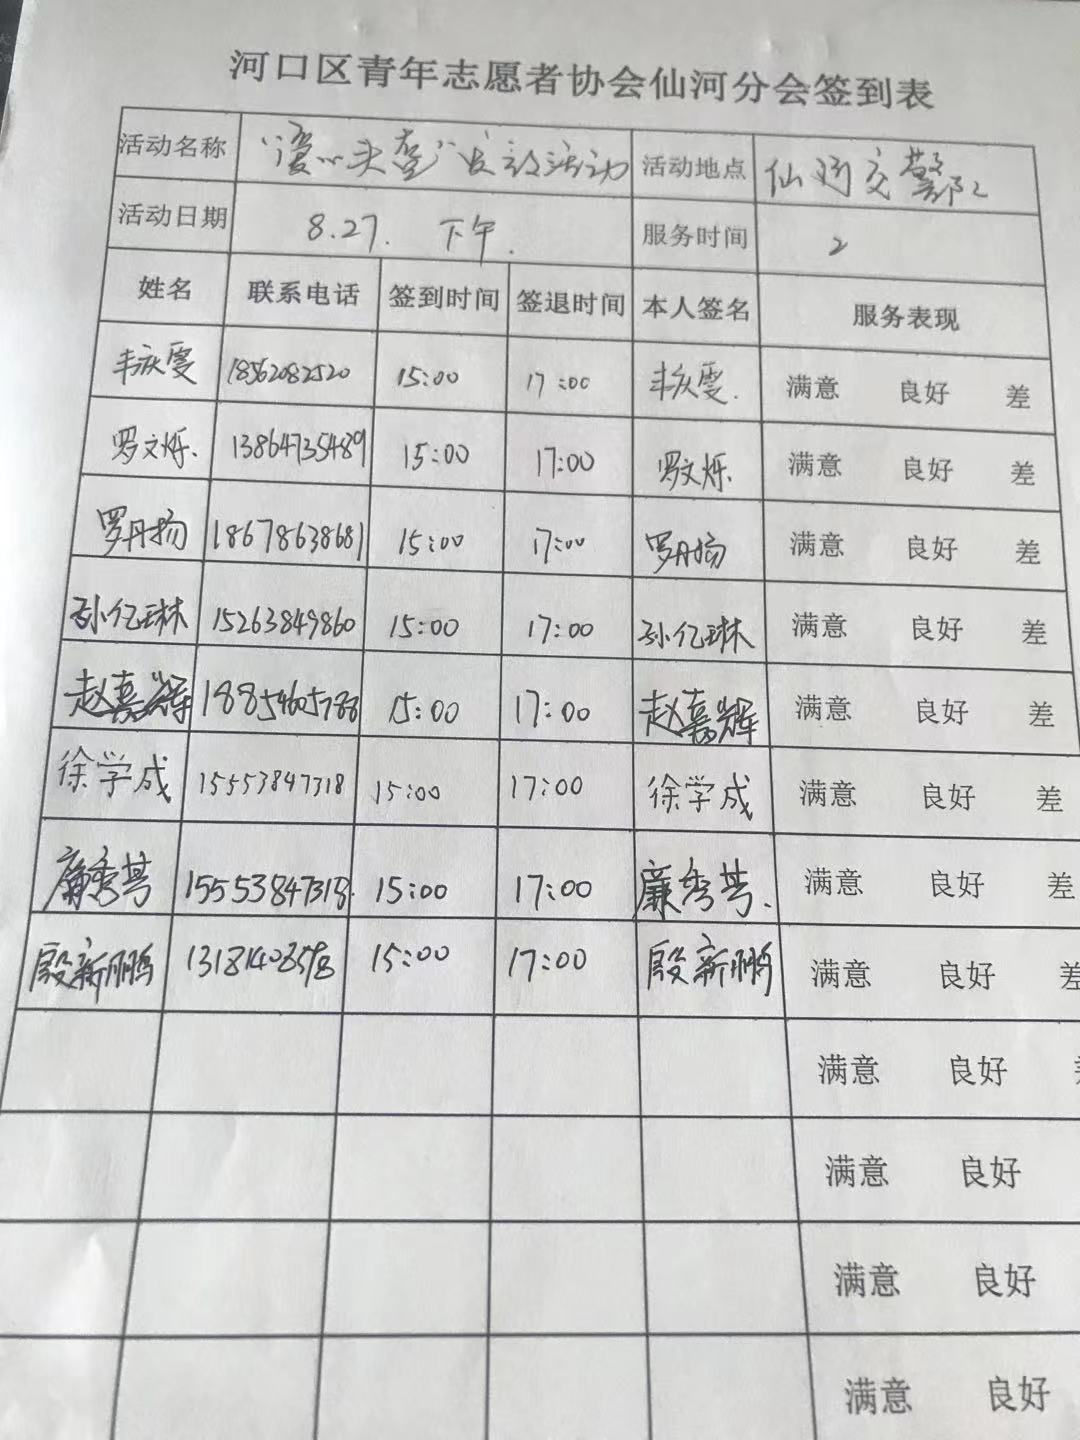 河口区青年志愿者协会仙河分会签到表
活动名称 “爱心头盔”发放活动 活动地点 仙河交警队
活动日期 8.27. 下午. 服务时间 2
姓名 联系电话 签到时间 签退时间 本人签名 服务表现
丰庆雯 18562082520 15:00 17:00 丰庆雯. 满意 良好 差
罗文烁. 13864735489 15:00 17:00 罗文烁. 满意 良好 差
罗丹扬 18678638681 15:00 17:00 罗丹扬 满意 良好 差
孙亿琳 15263849860 15:00 17:00 孙亿琳 满意 良好 差
赵嘉辉 18854605788 15:00 17:00 赵嘉辉 满意 良好 差
徐学成 15553847318 15:00 17:00 徐学成 满意 良好 差
廉秀芬 15553847318. 15:00 17:00 廉秀芬. 满意 良好 差
殷新鹏 15:00 17:00 殷新鹏 满意 良好 差
满意 良好
满意 良好
满意 良好
满意 良好